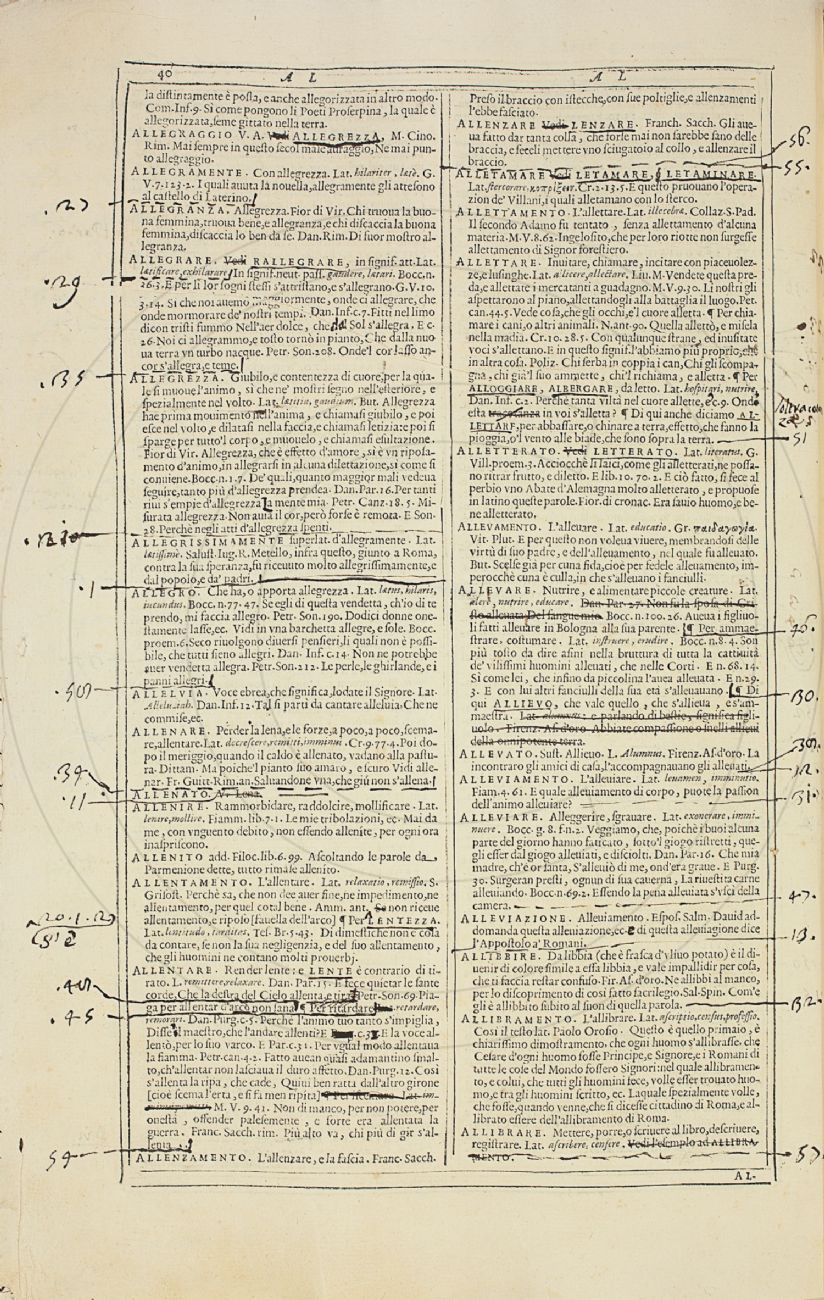 40 A L A L
la distintamente è posta, e anche allegorizzata in altro modo.
Com. Inf. 9. Si come pongono li Poeti Proserpina, la quale è
allegorizzata, seme gittato nella terra.
ALLEGRAGGIO V. A. Vedi ALLEGREZZA, M. Cino.
Rim. Mai sempre in questo secol male adraggio, Ne mai pun-
to allegraggio.
ALLEGRAMENTE. Con allegrezza. Lat. hilariter, lætè. G.
V. 7. 123. 2. I quali auuta la nouella, allegramente gli attesono
al castello di Laterino.
ALLEGRANZA. Allegrezza. Fior di Vir. Chi truoua la buo-
na femmina, truoua bene, e allegranza, e chi discaccia la buona
femmina, discaccia lo ben da se. Dan. Rim. Di fuor mostro al-
legranza.
ALLEGRARE. Vedi RALLEGRARE, in signif. att. Lat.
lætificare, exhilarare. In signif. neut. pass. gaudere, lætari. Bocc. n.
26. 3. E per li lor sogni stessi s'attristano, e s'allegrano. G. V. 10.
3. 14. Si che noi auemo maggiormente, onde ci allegrare, che
onde mormorare de' nostri tempi. Dan. Inf. c. 7. Fitti nel limo
dicon tristi fummo Nell'aer dolce, che dal Sol s'allegra. E c.
26. Noi ci allegrammo, e tosto tornò in pianto, Che dalla nuo-
ua terra vn turbo nacque. Petr. Son. 208. Onde'l cor lasso an-
cor s'allegra, e teme.
ALLEGREZZA. Giubilo, e contentezza di cuore, per la qua-
le si muoue l'animo, sì che ne' mostri segno nell'esteriore, e
spezialmente nel volto. Lat. lætitia, gaudium. But. Allegrezza
hae prima mouimento nell'anima, e chiamasi giubilo, e poi
esce nel volto, e dilatasi nella faccia, e chiamasi letizia: e poi si
sparge per tutto'l corpo, e muouelo, e chiamasi esultazione.
Fior di Vir. Allegrezza, che è effetto d'amore, sì è vn riposa-
mento d'animo, in allegrarsi in alcuna dilettazione, sì come si
conuiene. Bocc. n. 1. 7. De' quali, quanto maggior mali vedeua
seguire, tanto più d'allegrezza prendea. Dan. Par. 16. Per tanti
riui s'empie d'allegrezza La mente mia. Petr. Canz. 18. 5. Mi-
surata allegrezza Non auia il cor, però forse è remota. E Son.
28. Perchè negli atti d'allegrezza spenti.
ALLEGRISSIMAMENTE superlat. d'allegramente. Lat.
lætissimè. Salust. Iug. R. Metello, infra questo, giunto a Roma,
contra la sua speranza, fu riceuuto molto allegrissimamente, e
dal popolo, e da' padri.
ALLEGRO. Che ha, o apporta allegrezza. Lat. lætus, hilaris,
iucundus. Bocc. n. 77. 47. Se egli di questa vendetta, ch'io di te
prendo, mi faccia allegro. Petr. Son. 190. Dodici donne one-
stamente lasse, ec. Vidi in vna barchetta allegre, e sole. Bocc.
proem. 6. Seco riuolgono diuersi pensieri, li quali non è possi-
bile, che tutti sieno allegri. Dan. Inf. c. 14. Non ne potrebbe
auer vendetta allegra. Petr. Son. 212. Le perle, le ghirlande, e i
panni allegri.
ALLELVIA. Voce ebrea, che significa, lodate il Signore. Lat.
Alleluiah. Dan. Inf. 12. Tal si partì da cantare alleluia. Che ne
commise, ec.
ALLENARE. Perder la lena, e le forze, a poco, a poco, scema-
re, allentare. Lat. decrescere, remitti, imminui. Cr. 9. 77. 4. Poi do-
po il meriggio, quando il caldo è allenato, vadano alla pastu-
ra. Dittam. Ma poiche'l pianto suo amaro, e scuro Vidi alle-
nar. Fr. Guitt. Rim. an. Saluandone vna, che giù non s'allena.
ALLENATO. A. Lena.
ALLENIRE. Rammorbidare, raddolcire, mollificare. Lat.
lenire, mollire. Fiamm. lib. 7. 1. Le mie tribolazioni, ec. Mai da
me, con vnguento debito, non essendo allenite, per ogni ora
inasprscono.
ALLENITO add. Filoc. lib. 6. 99. Ascoltando le parole da
Parmenione dette, tutto rimase allenito.
ALLENTAMENTO. L'allentare. Lat. relaxatio, remissio. S.
Grisost. Perchè sa, che non dee auer fine, ne impedimento, ne
allentamento, per quel cotal bene. Amm. ant. Se non riceue
allentamento, e riposo [fauella dell'arco] ¶ Per LENTEZZA.
Lat. lentitudo, tarditas. Tes. Br. 5. 43. Di dimestiche non è cosa
da contare, se non la sua negligenzia, e del suo allentamento,
che gli huomini ne contano molti prouerbj.
ALLENTARE. Render lente: e LENTE è contrario di ti-
rato. L. remittere, relaxare. Dan. Par. 15. E fece quietar le sante
corde, Che la destra del Cielo allenta, e tira. Petr. Son. 69. Pia-
ga per allentar d'arco non sana. ¶ Per ritardare. retardare,
remorari. Dan. Purg. c. 5. Perchè l'animo tuo tanto s'impiglia,
Disse'l maestro, che l'andare allenti? E c. 31. E la voce al-
lentò, per lo suo varco. E Par. c. 31. Per vgual modo allentaua
la fiamma. Petr. can. 4. 2. Fatto auean quasi adamantino smal-
to, ch'allentar non lasciaua il duro affetto. Dan. Purg. 12. Così
s'allenta la ripa, che cade, Quiui ben ratta dall'altro girone
[cioè scema l'erta, e si fa men ripita]
M. V. 9. 41. Non di manco, per non potere, per
onestà, offender palesemente, e forte era allentata la
guerra. Franc. Sacch. rim. Più alto va, chi più di gir s'al-
lenta.
ALLENZAMENTO. L'allenzare, e la fascia. Franc. Sacch.
Preso il braccio con istecche, con sue poltiglie, e allenzamenti
l'ebbe fasciato.
ALLENZARE Vedi LENZARE. Franch. Sacch. Gli aue-
ua fatto dar tanta colla, che forse mai non sarebbe sano delle
braccia, e feceli mettere vno sciugatoio al collo, e allenzare il
braccio.
ALLETAMARE Vedi LETAMARE, e LETAMINARE.
Lat. stercorare. κοπρίζειν. Cr. 2. 13. 5. E questo pruouano l'opera-
zion de' Villani, i quali alletamano con lo sterco.
ALLETTAMENTO. L'allettare. Lat. illecebra. Collaz. S. Pad.
Il secondo Adamo fu tentato, senza allettamento d'alcuna
materia. M. V. 8. 62. Ingelosito, che per loro riotte non surgesse
allettamento di Signor forestiero.
ALLETTARE. Inuitare, chiamare, incitare con piaceuolez-
ze, e lusinghe. Lat. allicere, allectare. Liu. M. Vendete questa pre-
da, e allettate i mercatanti a guadagno. M. V. 9. 30. Li nostri gli
aspettarono al piano, allettandogli alla battaglia il luogo. Pet.
can. 44. 5. Vede cosa, che gli occhi, e'l cuore alletta. ¶ Per chia-
mare i cani, o altri animali. N. ant. 90. Quella allettò, e misela
nella madia. Cr. 10. 28. 5. Con qualunque strane, ed inusitate
voci s'allettano. E in questo signif. l'abbiamo più proprio, che
in altra cosa. Poliz. Chi serba in coppia i can, Chi gli scompa-
gna, chi già'l suo ammette, chi'l richiama, e alletta. ¶ Per
ALLOGGIARE, ALBERGARE, da letto. Lat. hospitari, nutrire,
Dan. Inf. c. 2. Perchè tanta viltà nel cuore allette, ec. 9. Ond'
esta tracotanza in voi s'alletta? ¶ Di qui anche diciamo AL-
LETTARE, per abbassare, o chinare a terra, effetto, che fanno la
pioggia, o'l vento alle biade, che sono sopra la terra.
ALLETTERATO. Vedi LETTERATO. Lat. literatus. G.
Vill. proem. 3. Acciocchè si laici, come gli alletterati, ne possa-
no ritrar frutto, e diletto. E lib. 10. 70. 2. E ciò fatto, si fece al
perbio vno Abate d'Alemagna molto alletterato, e propuose
in latino queste parole. Fior. di cronac. Era sauio huomo, e be-
ne alletterato.
ALLEVAMENTO. L'alleuare. Lat. educatio. Gr. παιδαγωγία.
Vit. Plut. E per questo non voleua viuere, membrandosi delle
virtù di suo padre, e dell'alleuamento, nel quale fu alleuato.
But. Scelse già per cuna fida, cioè per fedele alleuamento, im-
perocchè cuna è culla, in che s'alleuano i fanciulli.
ALLEVARE. Nutrire, e alimentare piccole creature. Lat.
alere, nutrire, educare. Dan. Par. 27. Non fu la sposa di Cri-
sto alleuata Del sangue mio. Bocc. n. 100. 26. Auea i figliuo-
li fatti alleuare in Bologna alla sua parente. ¶ Per ammae-
strare, costumare. Lat. instruere, erudire. Bocc. n. 8. 4. Son
più tosto da dire asini nella bruttura di tutta la cattiuità
de' vilissimi huomini alleuati, che nelle Corti. E n. 68. 14.
Si come lei, che infino da piccolina l'auea alleuata. E n. 29.
3. E con lui altri fanciulli della sua età s'alleuauano. ¶ Di
qui ALLIEVO, che vale quello, che s'allieua, e s'am-
maestra. Lat. alumnus: e parlando di bestie, significa figli-
uolo. Firenz. As. d'oro. Abbiate compassione o snelli allieui
della onnipotente terra.
ALLEVATO. Sust. Allieuo. L. Alumnus. Firenz. As. d'oro. La
incontro gli amici di casa, l'accompagnauano gli alleuati.
ALLEVIAMENTO. L'alleuiare. Lat. leuamen, imminutio.
Fiam. 4. 61. E quale alleuiamento di corpo, puote la passion
dell'animo alleuiare?
ALLEVIARE. Alleggerire, sgrauare. Lat. exonerare, immi-
nuere. Bocc. g. 8. f. n. 2. Veggiamo, che, poichè i buoi alcuna
parte del giorno hanno faticato, sotto'l giogo ristretti, que-
gli esser dal giogo alleuiati, e disciolti. Dan. Par. 16. Che mia
madre, ch'è or santa, S'alleuiò di me, ond'era graue. E Purg.
30. Surgeran presti, ognun di sua cauerna, La riuestita carne
alleuiando. Bocc. n. 69. 2. Essendo la pena alleuiata s'vscì della
camera.
ALLEVIAZIONE. Alleuiamento. Espos. Salm. Dauid ad-
domanda questa alleuiazione, ec. E di questa alleuiagione dice
l'Appostolo a' Romani.
ALLIBIRE. Da libbia (che è frasca d'vliuo potato) è il di-
uenir di colore simile a essa libbia, e vale impallidir per cosa,
che ti faccia restar confuso. Fir. As. d'oro. Ne allibbì al manco,
per lo discoprimento di così fatto sacrilegio. Sal. Spin. Com'e
gli è allibbito subito al suon di quella parola.
ALLIBRAMENTO. L'allibrare. Lat. ascriptio, census, professio.
Così il testo lat. Paolo Orosio. Questo è quello primaio, è
chiarissimo dimostramento, che ogni huomo s'allibrasse, che
Cesare d'ogni huomo fosse Principe, e Signore, e i Romani di
tutte le cose del Mondo fossero Signori: nel quale allibramen-
to, e colui, che tutti gli huomini fece, volle esser trouato huo-
mo, e fra gli huomini scritto, ec. La quale spezialmente volle,
che fosse, quando venne, che si dicesse cittadino di Roma, e al-
librato essere dell'allibramento di Roma.
ALLIBRARE. Mettere, porre, o scriuere al libro, descriuere,
registrare. Lat. ascribere, censere. Vedi l'esemplo ad ALLIBRA-
MENTO.
AL-
.27
.29
.135
.1
.39
.11
.45
59
56.
55.
51
46
130.
12.
131.
47.
13.
132.
57